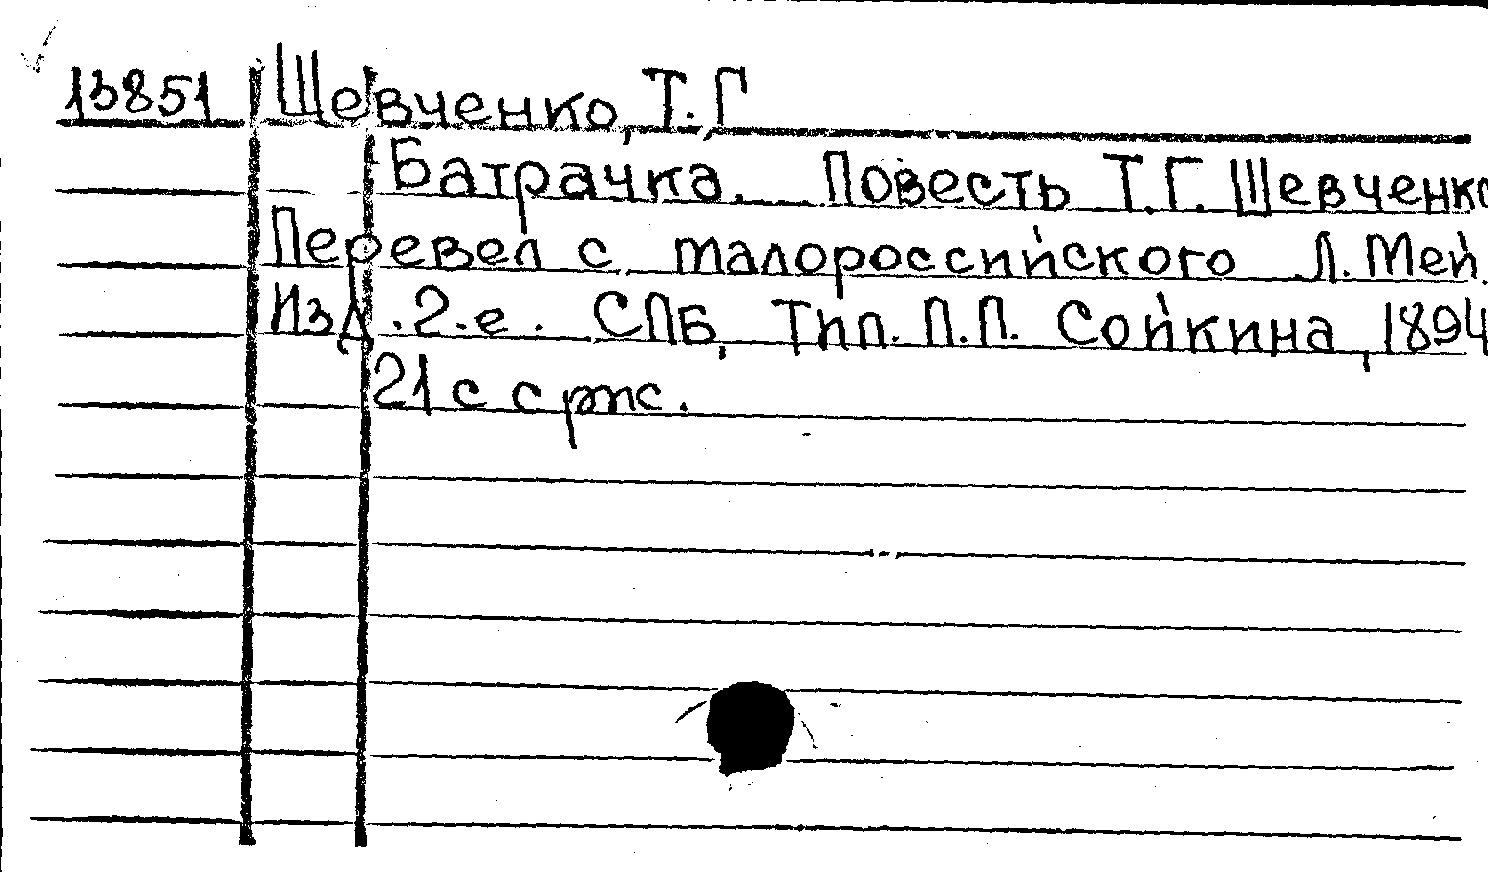 13851 Шевченко, Т. Г
Батрачка. Повесть Т. Г. Шевченко
Перевел с малороссийского Л. Мей.
Изд. 2-е. СПБ, Тип. П. П. Сойкина, 1894
21 с с рис.